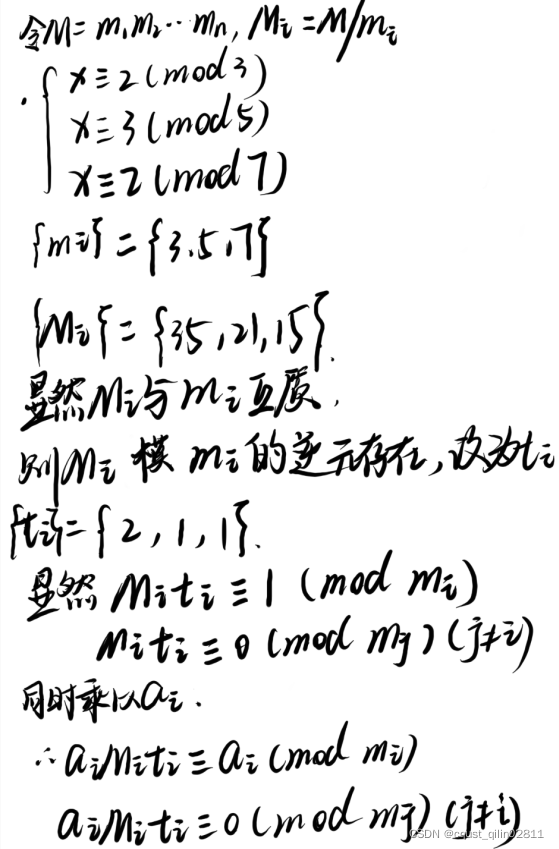 令M=m₁m₂⋯mₙ, Mᵢ=M/mᵢ
x≡2(mod3)
x≡3(mod5)
x≡2(mod7)
{mi}={3,5,7}
{Mi}={35,21,15}.
显然Mi与mi互质,
则Mi模mi的逆元存在,设为ti
{ti}={2,1,1}.
显然Miti≡1(mod mi)
Miti≡0(mod mj)(j≠i)
同时乘以ai.
∴aiMiti≡ai(mod mi)
aiMiti≡0(mod mj)(j≠i)
CSDN @cqust_qilin02811